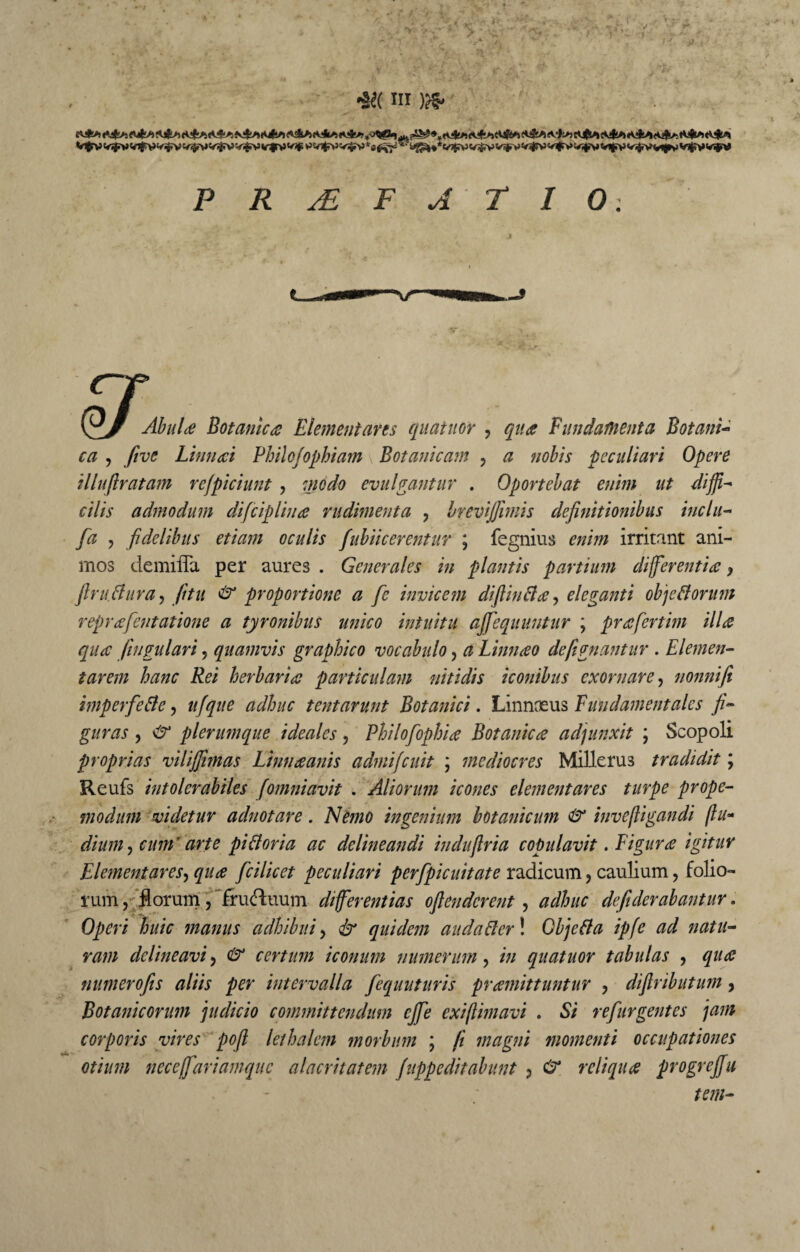 III
PRÆFATIO.
TAbulæ Botanicæ Elementares quatuor , quæ Fundamenta Botani-
ca , ſive Linnæi Philoſophiam Botanicam , a nobis peculiari Opere
illuſtratam reſpiciunt , modo evulgantur . Oportebat enim ut diffi-
cilis admodum diſciplinæ rudimenta , breviſſimis definitionibus inclu-
ſa , fidelibus etiam oculis ſubiicerentur ; ſegnius enim irritant ani-
mos demiſſa per aures . Generales in plantis partium differentiæ ,
ſtructura, ſitu & proportione a ſe invicem diſtinctæ, eleganti objectorum
repræſentatione a tyronibus unico intuitu aſſequuntur ; præſertim illæ
quæ ſingulari, quamvis graphico vocabulo, a Linnæo deſignantur . Elemen-
tarem hanc Rei herbariæ particulam nitidis iconibus exornare, nonniſi
imperfecte, uſque adhuc tentarunt Botanici. Linnœus Fundamentales fi-
guras , & plerumque ideales , Philoſophiæ Botanicæ adjunxit ; Scopoli
proprias viliſſimas Linnæanis admiſcuit ; mediocres Millerus tradidit ;
Reuſs intolerabiles ſomniavit . Aliorum icones elementares turpe prope-
modum videtur adnotare . Nemo ingenium botanicum & inveſtigandi ſtu-
dium, cum arte pictoria ac delineandi induſtria copulavit . Figuræ igitur
Elementares, quæ ſcilicet peculiari perſpicuitate radicum, caulium, folio-
rum, florum, fructuum differentias oſtenderent , adhuc deſiderabantur.
Operi huic manus adhibui, & quidem audacter! Objecta ipſe ad natu-
ram delineavi, & certum iconum numerum, in quatuor tabulas , quæ
numeroſis aliis per intervalla ſequuturis præmittuntur , diſtributum ,
Botanicorum judicio committendum eſſe exiſtimavi . Si reſurgentes jam
corporis vires poſt lethalem morbum ; ſi magni momenti occupationes
otium neceſſariamque alacritatem ſuppeditabunt , & reliquæ progreſſu
tem-